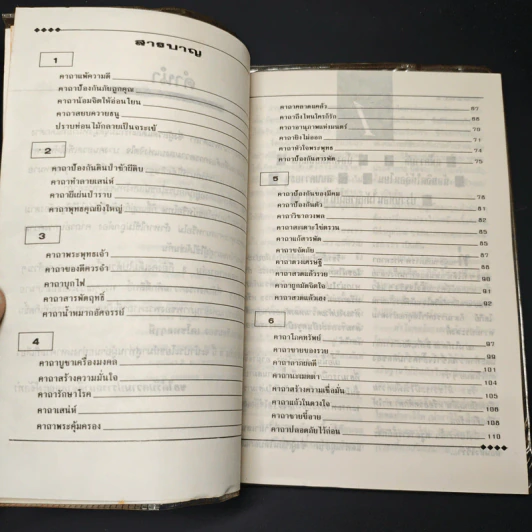 สารบาญ
1
คาถาแพ้ความดี
คาถาป้องกันภัยถูกคุณ
คาถาน้อมจิตให้อ่อนโยน
คาถาสยบความธนู
ปราบท่อนไม้กลายเป็นจระเข้
2
คาถาป้องกันตีนป่าข้ามีดิบ
คาถาทำลายเสน่ห์
คาถายีเย่นปราบ
คาถาพุทธคุณยิ่งใหญ่
3
คาถาพระพุทธเจ้า
คาถาของดีควรจำ
คาถาบูกไฟ
คาถาสารพัดฤทธิ์
คาถาน้ำหมากอัศจรรย์
4
คาถาบูชาเครื่องมงคล
คาถาสร้างความมั่นใจ
คาถารักษาโรค
คาถาเสน่ห์
คาถาพระคุ้มครอง
คาถาคลาดแคล้ว 67
คาถาถึงไหนใครก็รัก 68
คาถาอานุภาพแห่งมนตร์ 70
คาถายิงไม่ออก 71
คาถาหัวใจพระพุทธ 74
คาถาป้องกันสารพัด 75
5
คาถาป้องกันของมีคม 78
คาถาป้องกันตัว 81
คาถาวิชาลงพล 82
คาถาสะเดาะโซ่ตรวน 85
คาถาแก้สารพัด 86
คาถาขจัดภัย 87
คาถาดวงเศรษฐี 88
คาถาสวดแล้วรวย 90
คาถาผูกมัดจิตใจ 91
คาถาสวดแล้วเฮง 92
6
คาถาโภคทรัพย์ 97
คาถาขายของรวย 99
คาถาภาภัยดี 101
คาถานะเมตตา 104
คาถาสร้างความเชื่อมั่น 105
คาถาแก้วในดวงใจ 106
คาถาขายขี้อาย 108
คาถาปลอดภัยไว้ก่อน 110